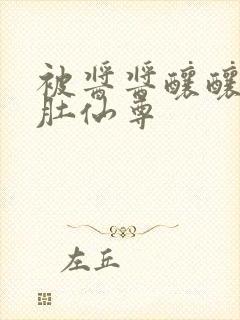 被酱酱酿酿
肚仙尊
左丘